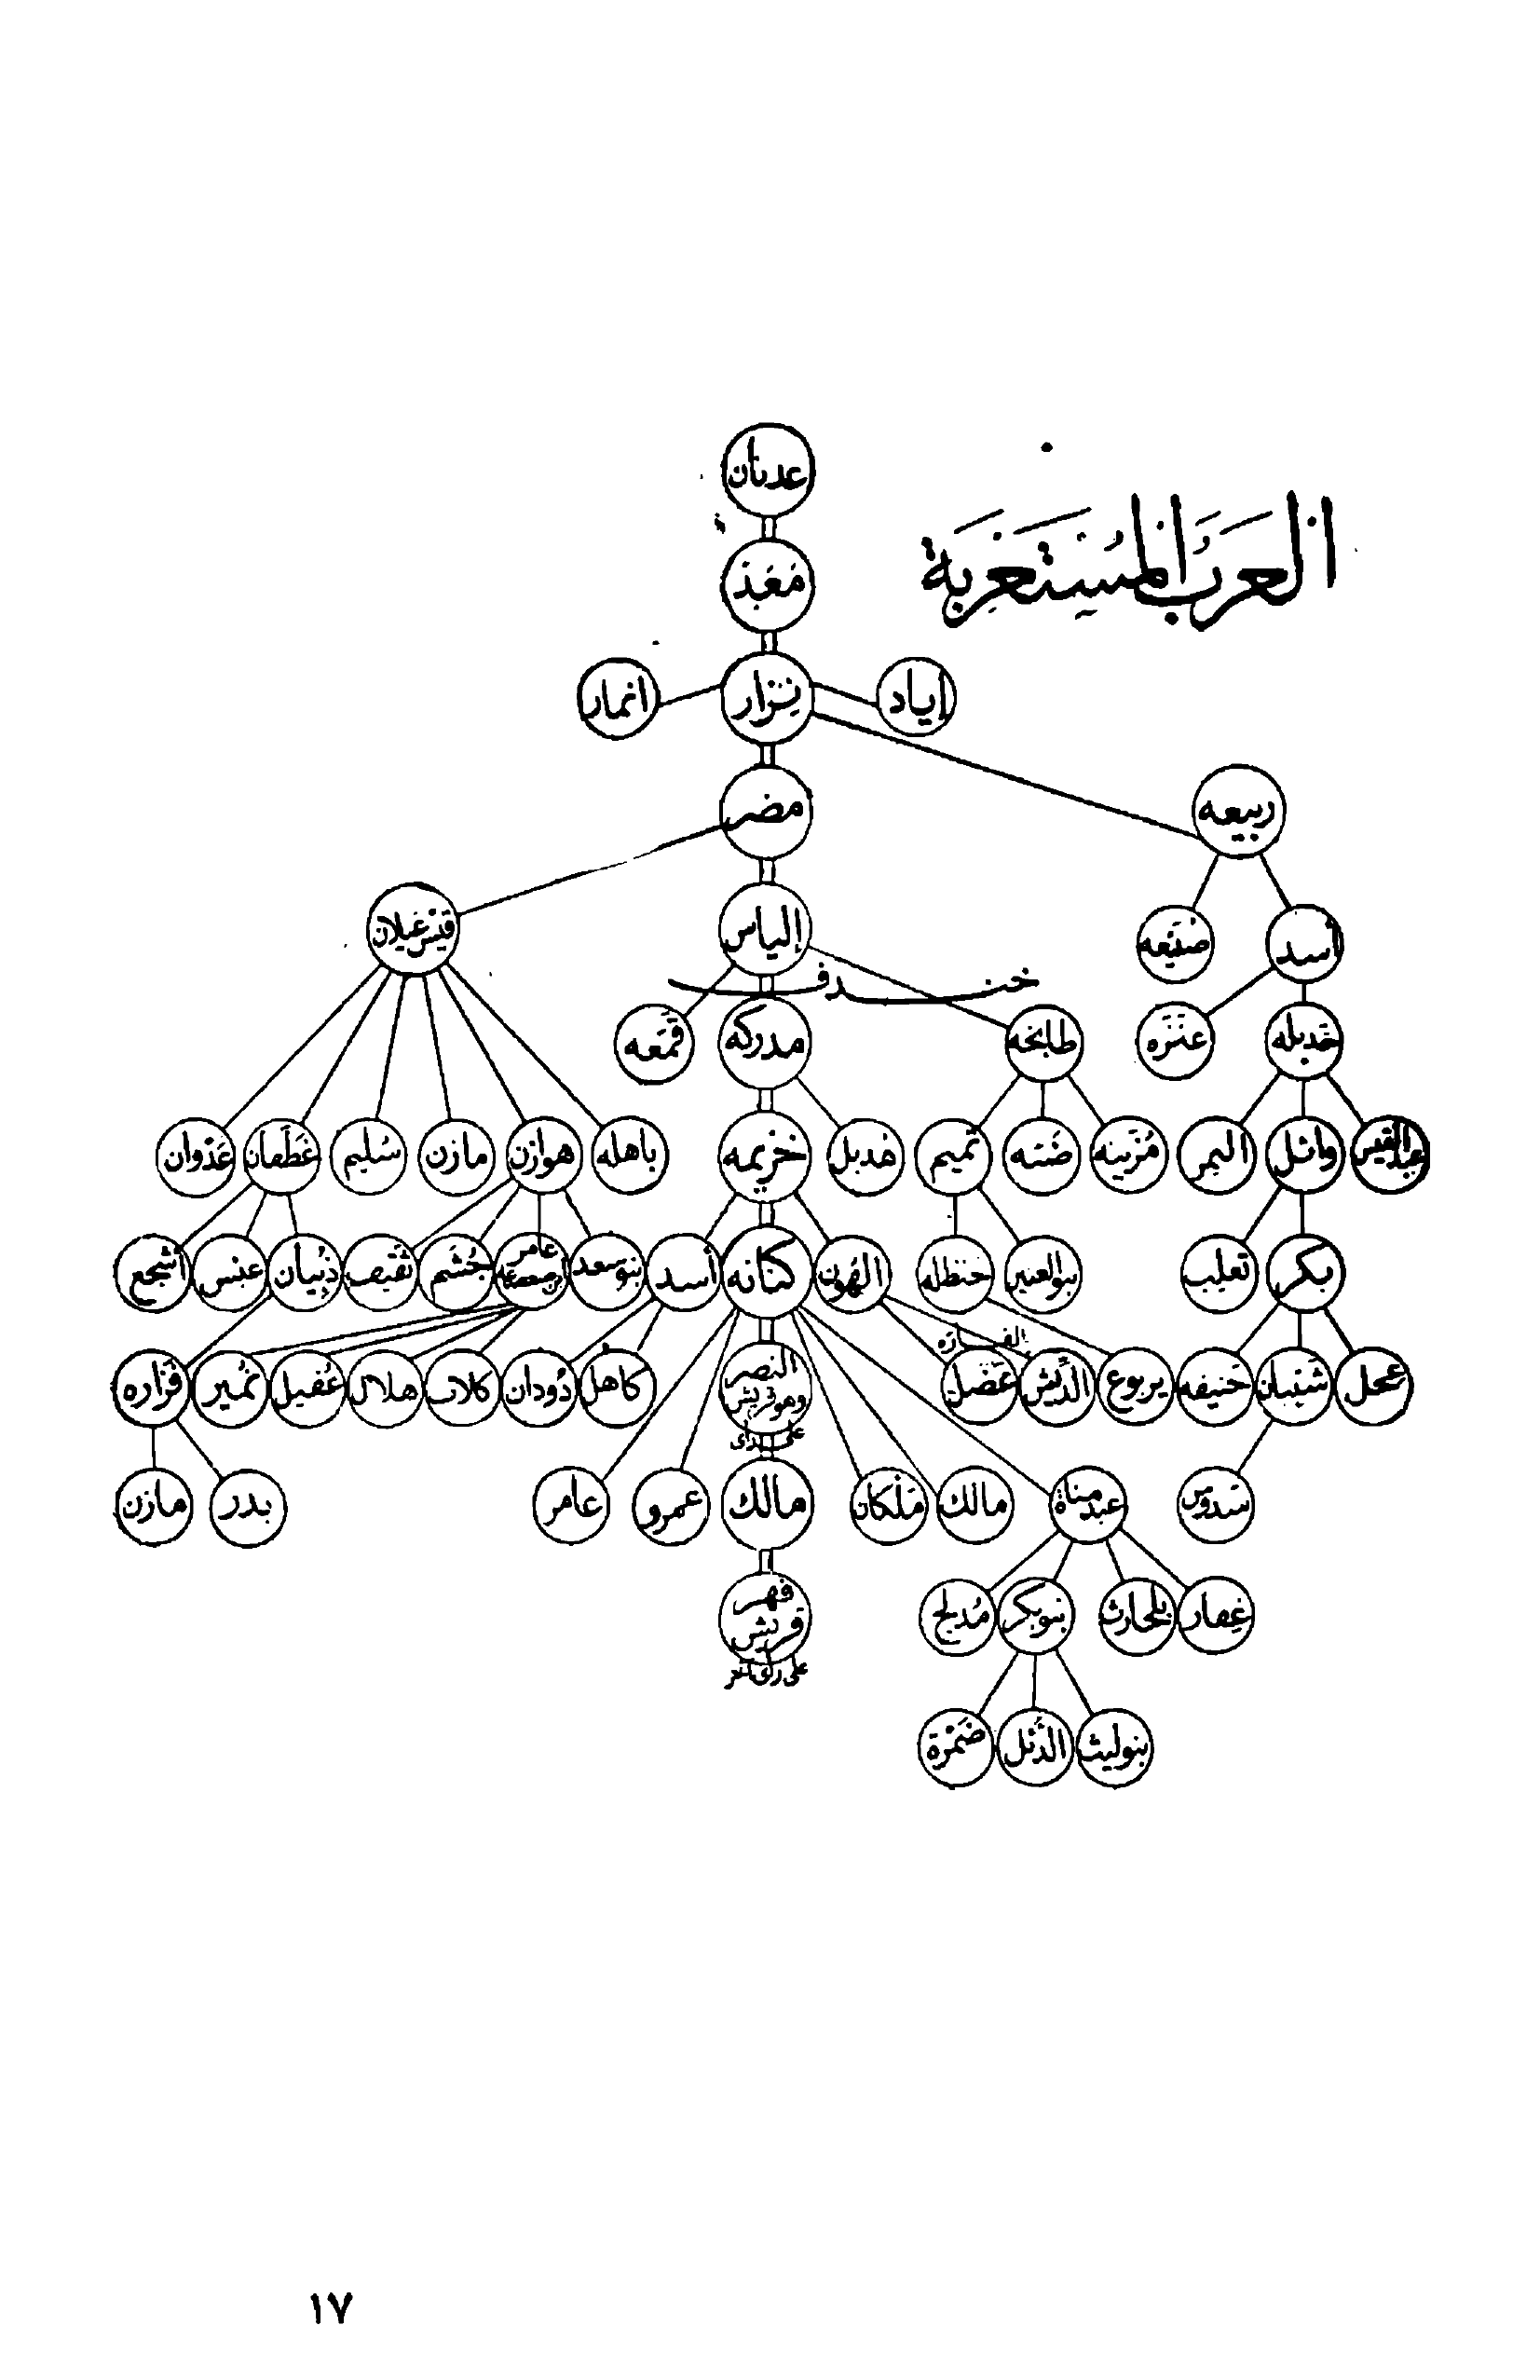 العرب المستعربة
عدنان
معد
إياد
نزار
انمار
ربيعه
مضر
أسد
إلياس
قيس عيلان
خندف
عنزه
طابخه
مدركه
قمعه
عبد القيس
وائل
النمر
مزينه
ضبه
تميم
هذيل
خزيمه
باهله
هوازن
مازن
سليم
غطفان
عدوان
بكر
تغلب
بنو العنبر
حنظله
الهون
كنانه
أسد
بنو سعد
عامر
جشم
ثقيف
ذبيان
عبس
أشجع
القاره
عجل
شيبان
حنيفه
يربوع
الديش
عضل
النضر
وهو قريش
كاهل
دودان
كلاب
هلال
عقيل
نمير
فزاره
سدوس
عبد مناة
مالك
ملكان
مالك
عمرو
عامر
بدر
مازن
غفار
بلحارث
بنو بكر
مدلج
فهر
قريش
على رأي آخر
بنو ليث
الدئل
ضمرة
١٧